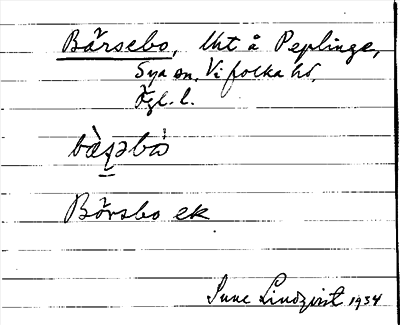 Bårsebo, Uht å Peplinge,
Sya sn, Vifolka hd,
Ögl. l.
Bŏrsbo ek
Sune Lindqvist 1934